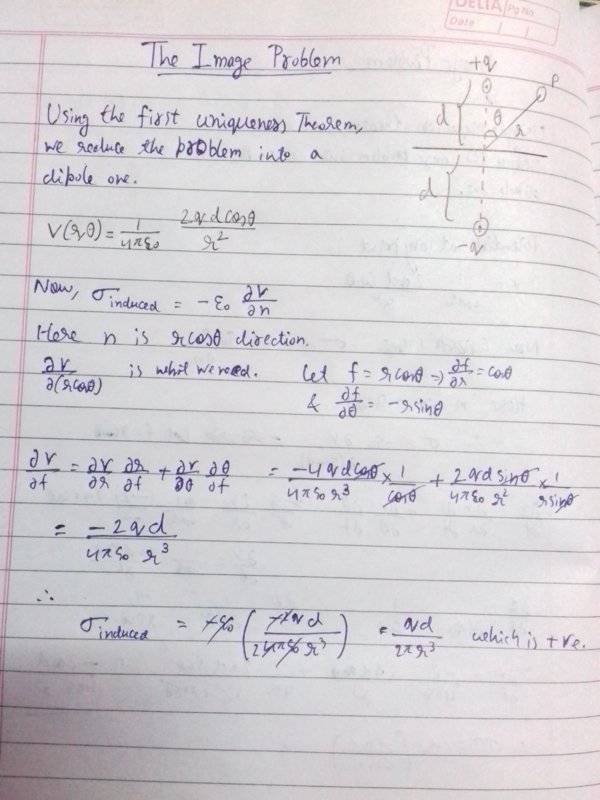 DELTA Pg No.
Date
The Image Problem
+q
P
d
θ
r
d
-q
Using the first uniqueness Theorem,
we reduce the problem into a
dipole one.
V(rθ) = 1/4πε₀ 2qdcosθ/r²
Now, σinduced = -ε₀ ∂V/∂n
Here n is rcosθ direction.
∂V/∂(rcosθ) is what we need. Let f = rcosθ ⇒ ∂f/∂r = cosθ
& ∂f/∂θ = -rsinθ
∂V/∂f = ∂V/∂r ∂r/∂f + ∂V/∂θ ∂θ/∂f = -4qdcosθ/4πε₀r³ × 1/cosθ + 2qdsinθ/4πε₀r² × 1/rsinθ
= -2qd/4πε₀ r³
∴
σinduced = -ε₀ (-2qd/24πε₀r³) = qd/2πr³ which is +ve.